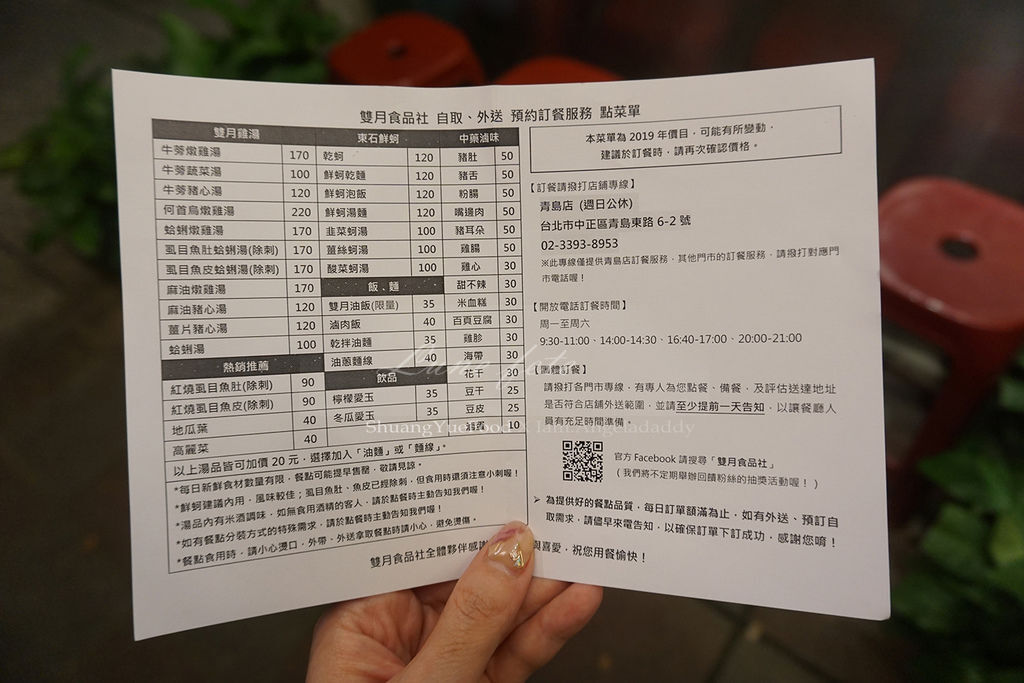 雙月食品社 自取、外送 預約訂餐服務 點菜單
雙月雞湯
牛蒡燉雞湯 170
牛蒡蔬菜湯 100
牛蒡豬心湯 120
何首烏燉雞湯 220
蛤蜊燉雞湯 170
虱目魚肚蛤蜊湯(除刺) 170
虱目魚皮蛤蜊湯(除刺) 170
麻油燉雞湯 170
麻油豬心湯 120
薑片豬心湯 120
蛤蜊湯 100
熱銷推薦
紅燒虱目魚肚(除刺) 90
紅燒虱目魚皮(除刺) 90
地瓜葉 40
高麗菜 40
東石鮮蚵
乾蚵 120
鮮蚵乾麵 120
鮮蚵泡飯 120
鮮蚵湯麵 120
韭菜蚵湯 100
薑絲蚵湯 100
酸菜蚵湯 100
飯、麵
雙月油飯(限量) 35
滷肉飯 40
乾拌油麵 35
油蔥麵線 40
飲品
檸檬愛玉 35
冬瓜愛玉 35
中藥滷味
豬肚 50
豬舌 50
粉腸 50
嘴邊肉 50
豬耳朵 50
雞腸 50
雞心 30
甜不辣 30
米血糕 30
百頁豆腐 30
雞胗 30
海帶 30
花干 30
豆干 25
豆皮 25
10
以上湯品皆可加價 20 元，選擇加入「油麵」或「麵線」。
*每日新鮮食材數量有限，餐點可能提早售罄，敬請見諒。
*鮮蚵建議內用，風味較佳；虱目魚肚、魚皮已經除刺，但食用時還須注意小刺喔！
*湯品內有米酒調味，如無食用酒精的客人，請於點餐時主動告知我們喔！
*如有餐點分裝方式的特殊需求，請於點餐時主動告知我們喔！
*餐點食用時，請小心燙口，外帶、外送拿取餐點時請小心，避免燙傷。
本菜單為 2019 年價目，可能有所變動，
建議於訂餐時，請再次確認價格。
【訂餐請撥打店鋪專線】
青島店 (週日公休)
台北市中正區青島東路 6-2 號
02-3393-8953
※此專線僅提供青島店訂餐服務，其他門市的訂餐服務，請撥打對應門
市電話喔！
【開放電話訂餐時間】
周一至周六
9:30-11:00、14:00-14:30、16:40-17:00、20:00-21:00
【團體訂餐】
請撥打各門市專線，有專人為您點餐、備餐，及評估送達地址
是否符合店鋪外送範圍，並請至少提前一天告知，以讓餐廳人
員有充足時間準備。
官方 Facebook 請搜尋「雙月食品社」
（我們將不定期舉辦回饋粉絲的抽獎活動喔！）
➢ 為提供好的餐點品質，每日訂單額滿為止，如有外送、預訂自
取需求，請儘早來電告知，以確保訂單下訂成功，感謝您唷！
雙月食品社全體夥伴感謝 與喜愛，祝您用餐愉快！